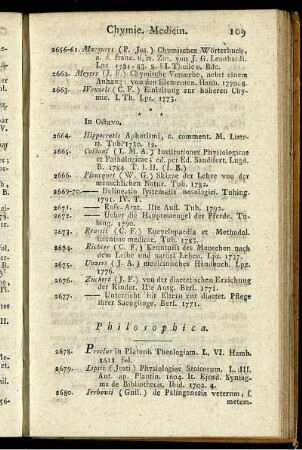 Chymie. Medicin. 109
2656-61. Macquers (P. Jos.) Chymisches Wörterbuch,
a. d. franz. u. m. Zus. von J. G. Leonhardi.
Lpz. 1781-83. 8. 6 Theile u. Bde.
2662. Meyers (J. F.) Chymische Versuche, nebst einem
Anhang: von den Elementen. Hann. 1770. 8.
2663. Wenzels (C. F.) Einleitung zur höheren Chy-
mie. I. Th. Lpz. 1773.
* * *
In Octavo.
2664. Hippocratis Aphorismi, c. comment. M. Liste-
ri. Tub. 1730. 12.
2665. Caldani (L. M. A.) Institutiones Physiologicae
et Pathologicae; ed. per Ed. Sandifort. Lugd.
B. 1784. T. I. II. (I. B.)
2666. Ploucquet (W. G.) Skizze der Lehre von der
menschlichen Natur. Tub. 1782.
2669-70. — Delineatio systematis nosologici. Tubing.
1791. IV. T.
2671. — Ross-Arzt. IIte Aufl. Tub. 1792.
2672. — Ueber die Hauptmaengel der Pferde. Tu-
bing. 1790.
2673. Reussii (C. F.) Encyclopaedia et Methodol.
scientiae medicae. Tub. 1783.
2674. Richers (C. F.) Kenntniss des Menschen nach
dem Leibe und natürl. Leben. Lpz. 1737.
2675. Unzers (J. A.) medicinisches Handbuch. Lpz.
1776.
2676. Zückert (J. F.) von der diaetetischen Erziehung
der Kinder. IIte Ausg. Berl. 1771.
2677. — Unterricht für Eltern zur diaetet. Pflege
ihrer Saeuglinge. Berl. 1771.
Philosophica.
2678. Proclus in Platonis Theologiam. L. VI. Hamb.
1618 fol.
2679. Lipsii (Justi) Physiologiae Stoicorum. L. III.
Ant. ap. Plantin. 1604. It. Ejusd. Syntag-
ma de Bibliothecis. Ibid. 1702. 4.
2680. Irrhovii (Guil.) de Palingenesia veterum, s.
metem-